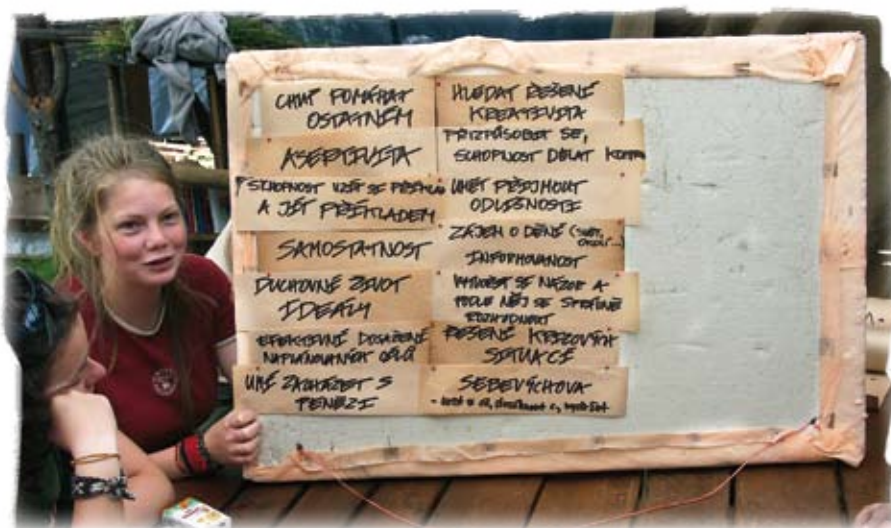 CHUŤ POMÁHAT
OSTATNÍM
ASERTIVITA
SCHOPNOST VZÍT SI PŘÍKLAD
A JÍT PŘÍKLADEM
SAMOSTATNOST
DUCHOVNÍ ŽIVOT
IDEÁLY
EFEKTIVNÍ DOSAŽENÍ
NAPLÁNOVANÝCH CÍLŮ
UMÍ ZACHÁZET S
PENĚZI
HLEDAT ŘEŠENÍ
KREATIVITA
PŘIZPŮSOBIT SE,
SCHOPNOST DĚLAT KOMP
UMĚT PŘIJMOUT
ODLIŠNOSTI
ZÁJEM O DĚNÍ (SVĚT,
OKOLÍ...)
INFORMOVANOST
VYTVOŘIT SI NÁZOR A
PODLE NĚJ SE SPRÁVNĚ
ROZHODNOUT
ŘEŠENÍ KRIZOVÝCH
SITUACÍ
SEBEVÝCHOVA